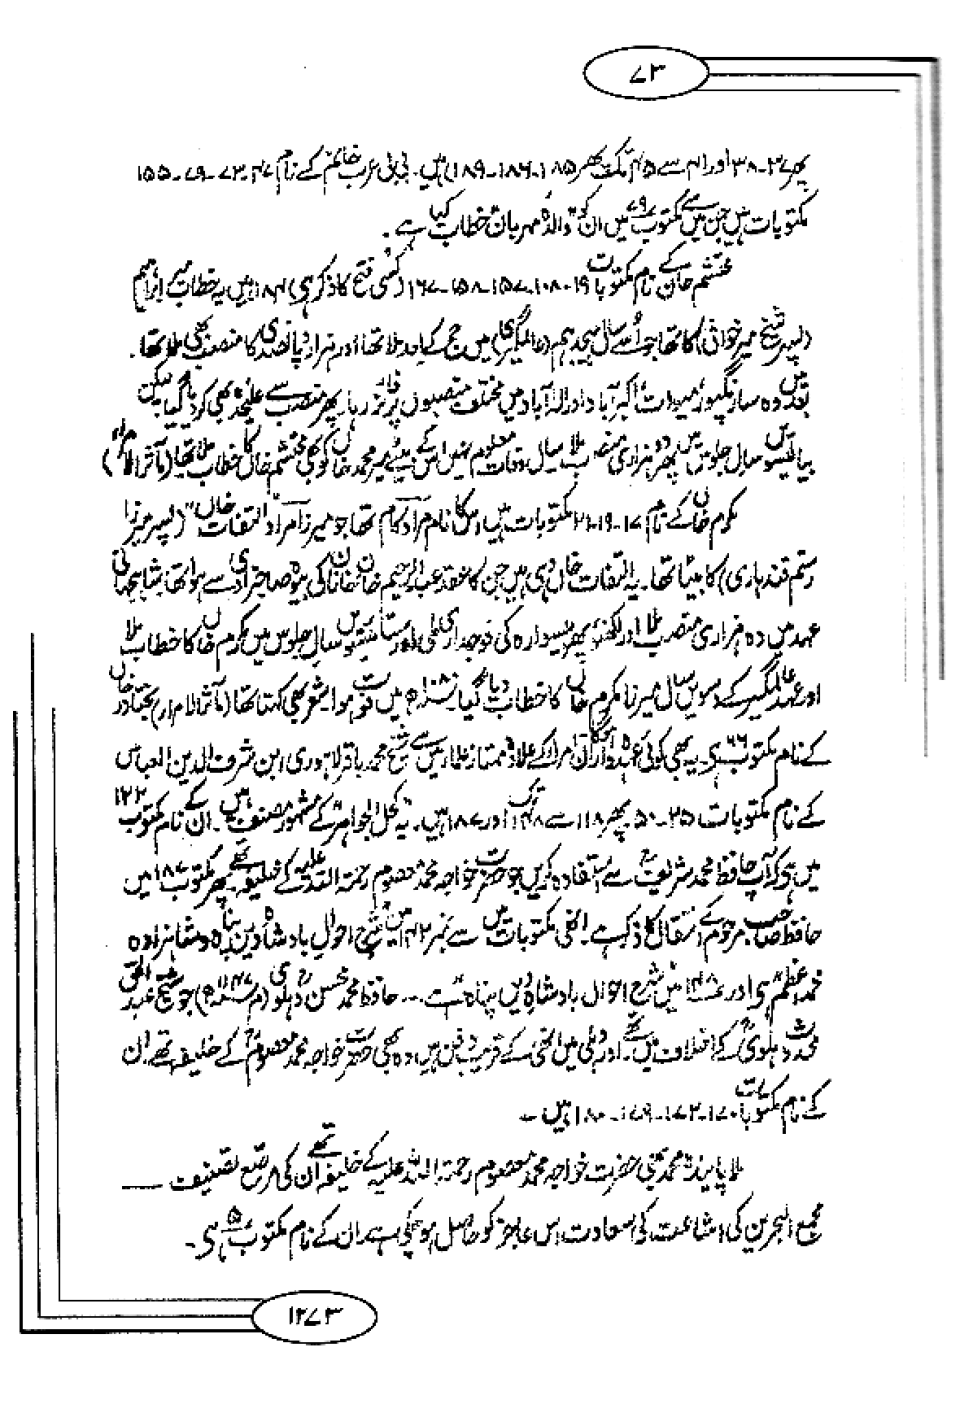 ۷۳
پھر ۳۷۔۳۸ اور ۴۱ سے ۴۵ تک پھر ۱۸۵۔۱۸۶۔۱۸۹ ہیں۔ بی بی عرب خانم کے نام ۴۷۔۷۳۔۷۹۔۱۵۵
مکتوبات ہیں جن میں سے مکتوب ۷۹ میں ان کو "والدہ مہربان" خطاب کیا ہے۔
محتشم خان کے نام مکتوبات ۱۹۔۱۰۸۔۱۵۷۔۱۵۸۔۱۶۷ (کسی فتح کا ذکر ہے) ۱۸۴ ہیں یہ خطاب میر ابراہیم
(پسر شیخ میر خوافی) کا تھا جو اسے سال ہیجدہم (عالمگیری) میں حج کے بعد ملا تھا اور ہزار و پانصدی کا منصب بھی ملا تھا۔
بعد میں وہ سارنگپور، میوات، اکبرآباد اور الہ آباد میں مختلف منصبوں پر فائز رہا۔ پھر منصب سے علیحدہ بھی کردیا گیا لیکن
بیالیسویں سال جلوس میں پھر دو ہزاری منصب ملا سال وفات معلوم نہیں اس کے بیٹے میر محمد خاں کو بھی محتشم خاں کا خطاب ملا تھا (مآثر الامراء)
مکرم خاں کے نام ۱۷۔۱۹۔۲۱ مکتوبات ہیں اس کا نام مراد کام تھا جو میرزا مراد "التفات خاں" (پسر میرزا
رستم قندہاری) کا بیٹا تھا۔ یہ التفات خاں وہی ہیں جن کا عقد عبدالرحیم خان خاناں کی بیوہ صاحبزادی سے ہوا تھا، شاہجہانی
عہد میں دہ ہزاری منصب ملا اور لکھنؤ پھر بیسوارہ کی فوجداری ملی اور ستائیسویں سال جلوس میں مکرم خاں کا خطاب ملا
اور عہد عالمگیر کے دسویں سال میرزا مکرم خاں کا خطاب دیا گیا ۱۰۸۰ھ میں فوت ہوا۔ شعر بھی کہتا تھا (مآثر الامراء) بختاور خاں
کے نام مکتوب ۶۶ ہے یہ بھی کوئی عہدہ دار ہوگا ان امراء کے علاوہ ممتاز علماء میں سے شیخ محمد باقر لاہوری ابن شرف الدین العباسی
کے نام مکتوبات ۳۵۔۵۰ پھر ۱۱۸ سے ۱۴۸ تک اور ۱۸۷ ہیں۔ یہ کحل الجواہر کے مشہور مصنف ہیں۔ ان کے نام مکتوب ۱۲۲
میں ہے کہ آپ حافظ محمد شریف سے استفادہ کریں جو حضرت خواجہ محمد معصوم رحمۃ اللہ علیہ کے خلیفہ تھے پھر مکتوب ۱۸۷ میں
حافظ صاحب مرحوم کے انتقال کا ذکر ہے۔ انہی مکتوبات میں سے نمبر ۱۴۲ میں "شرح احوال بادشاہ دین پناہ و شاہزادہ
محمد اعظم" ہے اور ۱۴۸ میں "شرح احوال بادشاہ دیں پناہ" ہے ... حافظ محمد محسن دہلوی (م ۱۱۴۷ھ) جو شیخ عبدالحق
محدث دہلوی کے اخلاف میں تھے۔ اور دہلی میں انہی کے قریب دفن ہیں وہ بھی حضرت خواجہ محمد معصوم کے خلیفہ تھے ان
کے نام مکتوبات ۱۷۰۔۱۷۲۔۱۷۹۔۱۸۰ ہیں ۔
ملا پایندہ محمد نبی حضرت خواجہ محمد معصوم رحمۃ اللہ علیہ کے خلیفہ تھے ان کی مرصع تصنیف ___
مجمع البحرین کی اشاعت کی سعادت اس عاجز کو حاصل ہو چکی ہے ان کے نام مکتوب ۵ ہے۔
۱۲۷۳